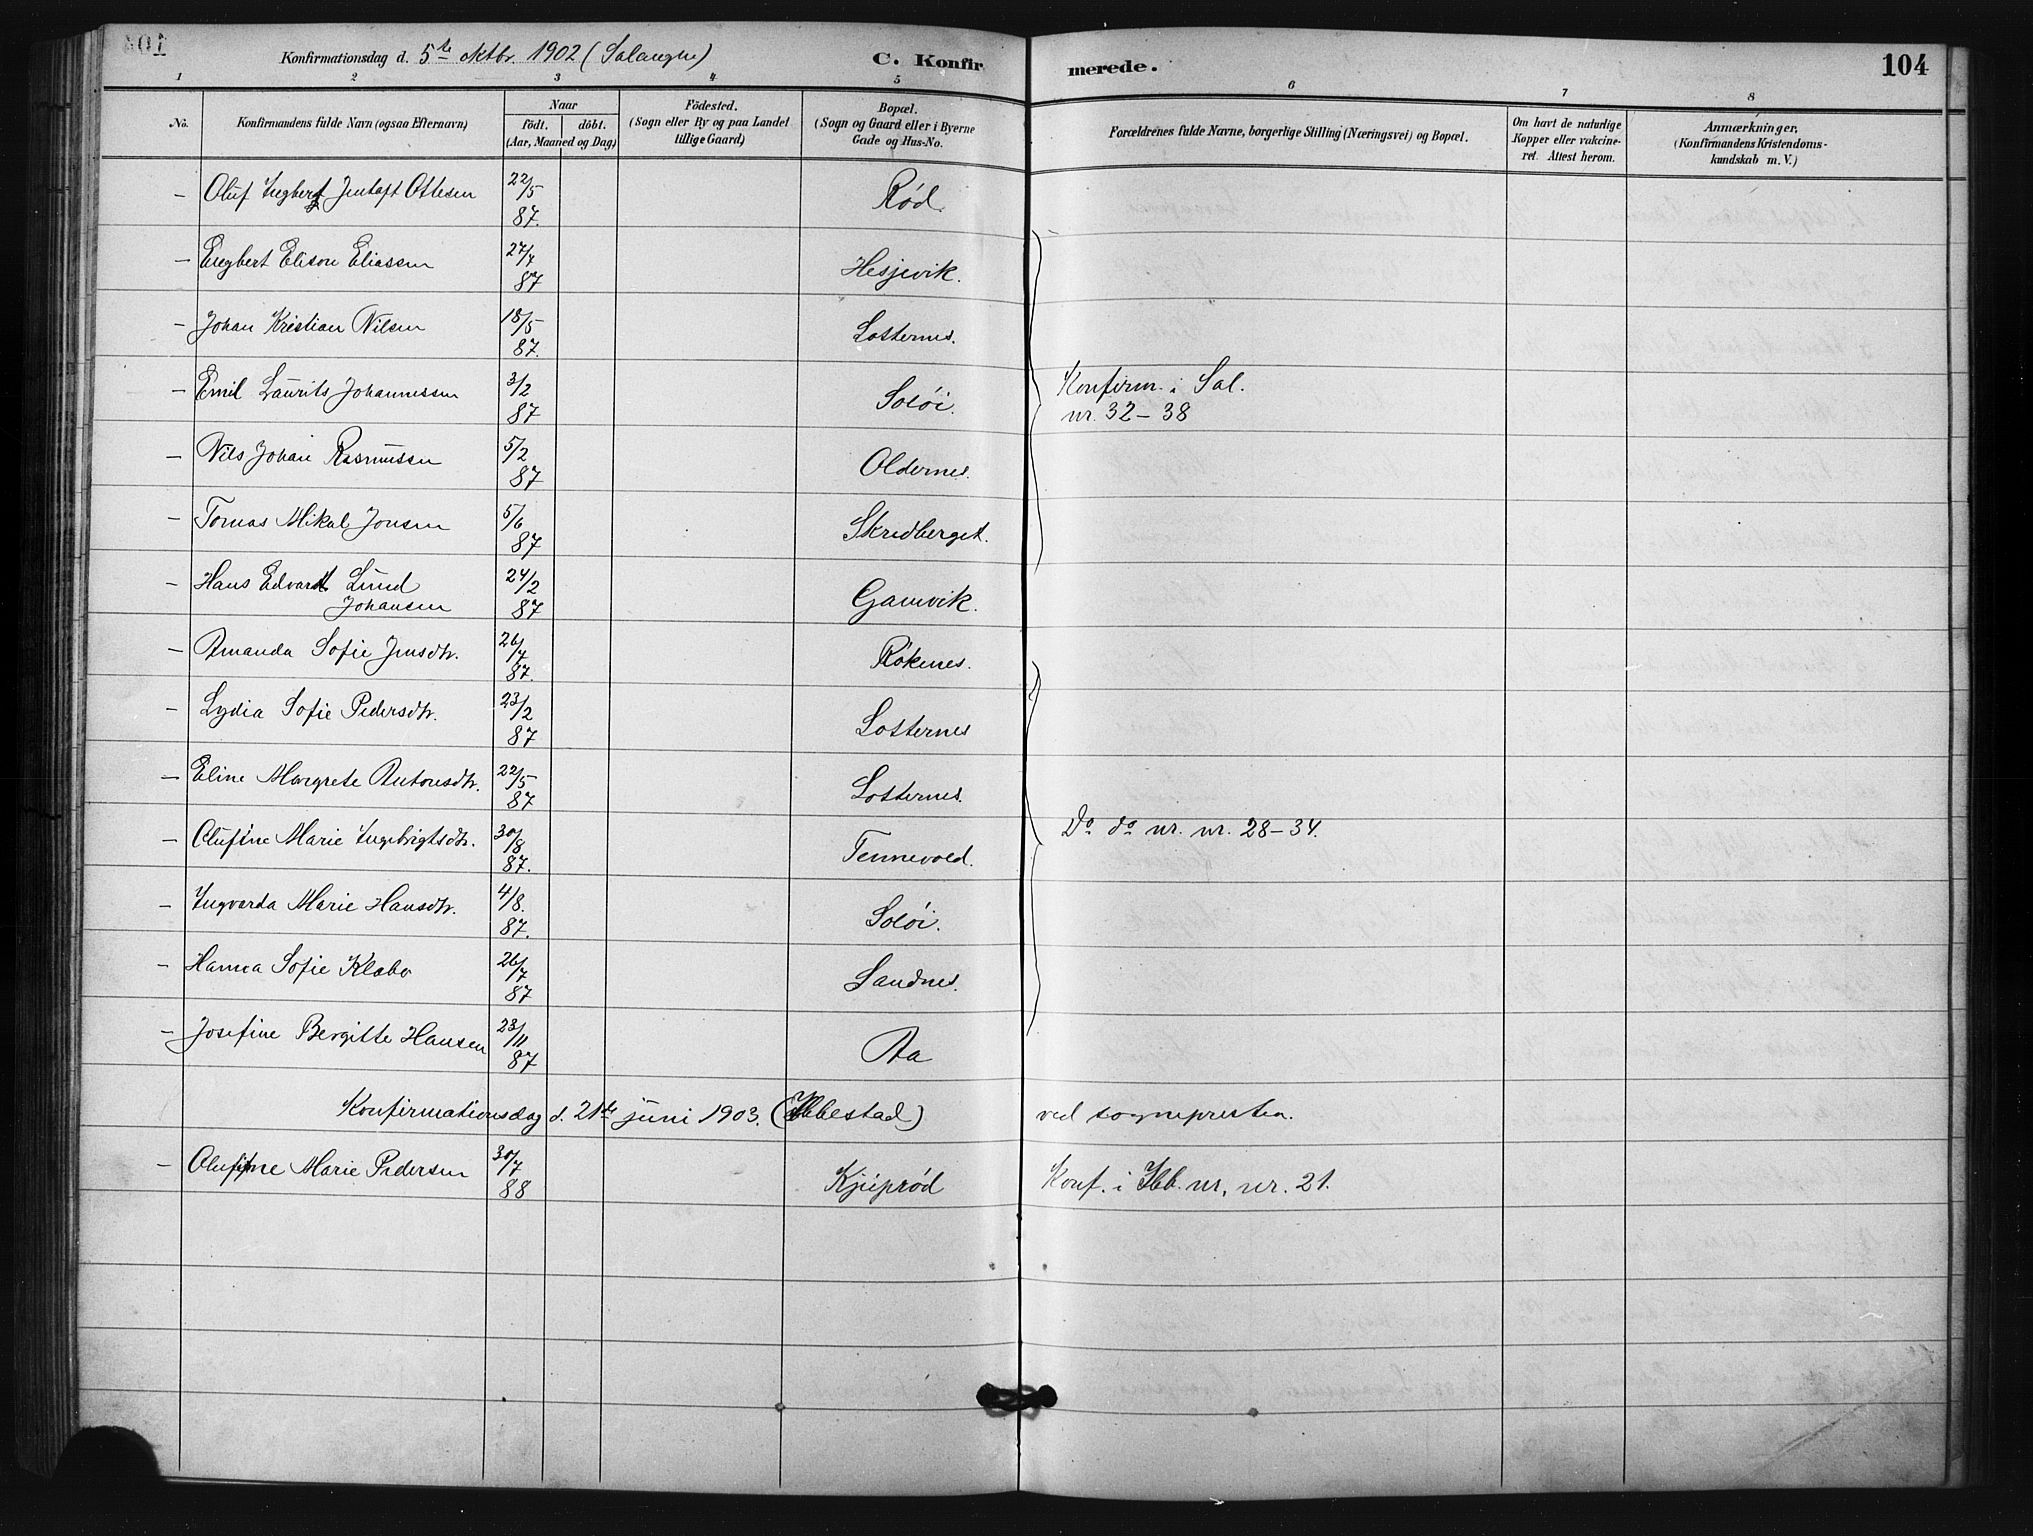 Konfirmationsdag d. 5te oktbr. 1902 (Salangen)
C. Konfirmerede.
104
1 2 3 4 5 6 7 8
No.
Konfirmandens fulde Navn (ogsaa Efternavn)
Naar
födt. döbt.
(Aar, Maaned og Dag)
Födested.
(Sogn eller By og paa Landet
tillige Gaard)
Bopæl.
(Sogn og Gaard eller i Byerne
Gade og Hus-No.
Forældrenes fulde Navne, borgerlige Stilling (Næringsvei) og Bopæl.
Om havt de naturlige
Kopper eller vakcine-
ret. Attest herom.
Anmærkninger,
(Konfirmandens Kristendoms-
kundskab m. V.)
– Oluf Ingbert Jentoft Ottesen 22/5 87. Rød.
– Engbert Elison Eliassen 27/7 87 Hesjevik.
– Johan Kristian Nilsen 18/5 87. Lotternes.
– Emil Laurits Johannessen 3/2 87 Soløi.
Konfirm. i Sal.
nr. 32–38
– Nils Johan Rasmussen 5/2 87 Oldernes.
– Tomas Mikal Jonsen 5/6 87 Skredberget.
– Hans Edvard Lund
Johansen 24/2 87 Gamvik.
– Amanda Sofie Jensdtr. 26/7 87. Røkenes.
– Lydia Sofie Pedersdtr. 23/2 87 Lotternes
– Eline Margrete Antonsdtr. 22/5 87 Lotternes.
– Olufine Marie Ingebrigtsdtr. 30/8 87. Tennevold.
Do do nr. nr. 28–34.
– Ingvarda Marie Hansdtr. 4/8. 87. Soløi.
– Hanna Sofie Klæbo 26/7 87 Sandnes.
– Josefine Bergitte Hansen 23/11 87 Aa
Konfirmationsdag d. 21de juni 1903. (Ibbestad) ved sognepresten.
– Olufine Marie Pedersen 30/7 88 Kjeiprød Konf. i Ibb. nr. nr. 21.